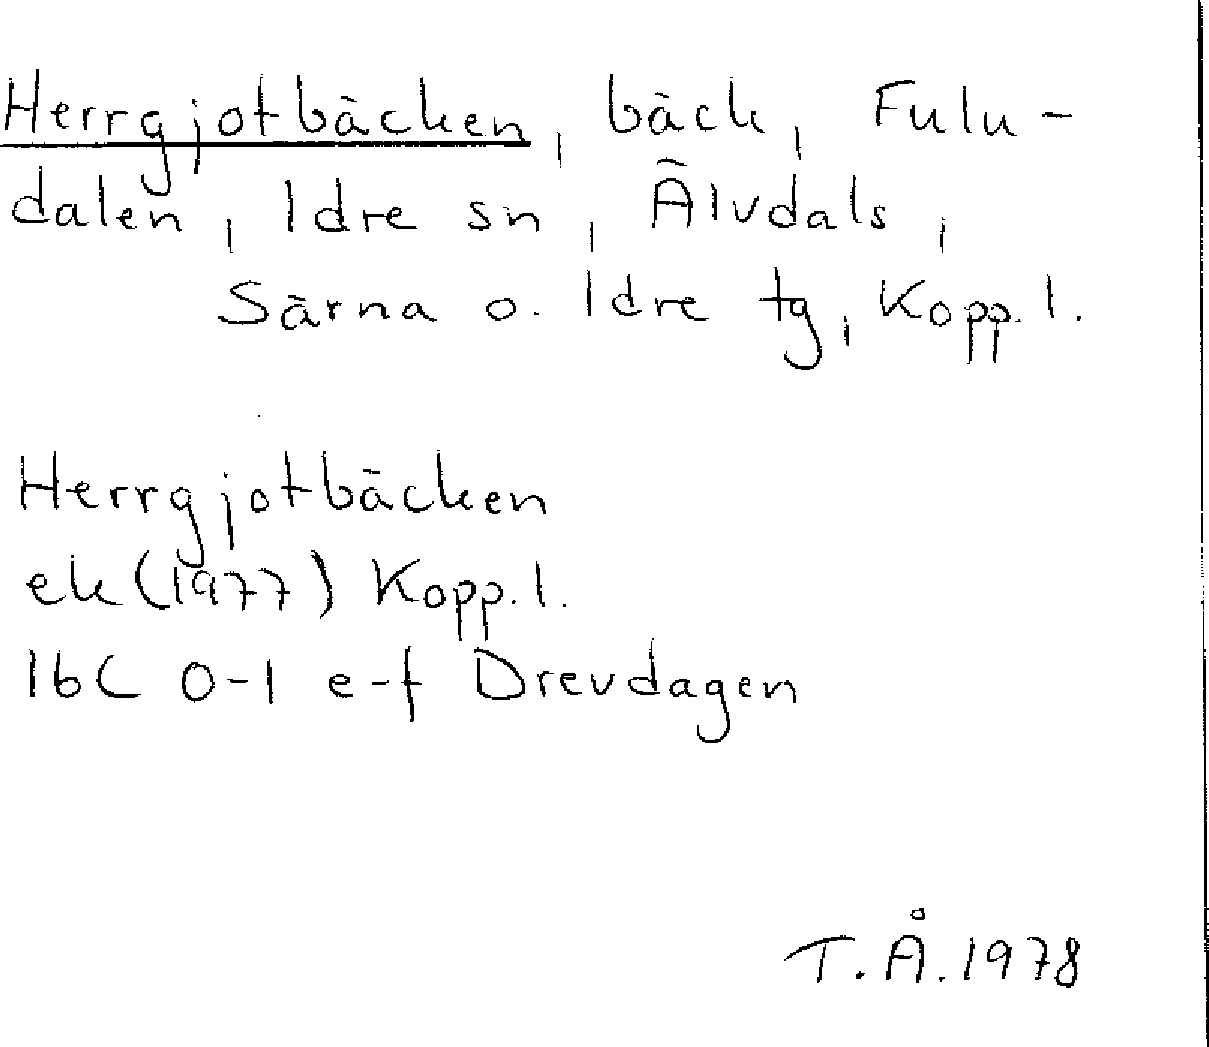 Herrgjotbäcken, bäck, Fulu-
dalen, Idre sn, Älvdals,
Särna o. Idre tg, Kopp. l.
Herrgjotbäcken
ek (1977) Kopp. l.
16C 0-1 e-f Drevdagen
T.Å. 1978